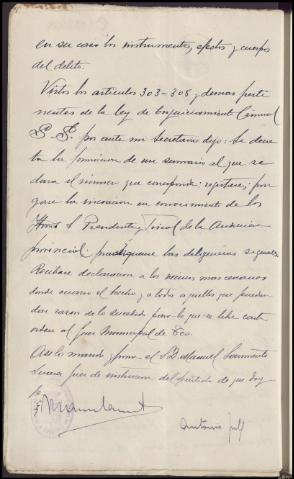 en su caso los instrumentos, efectos y cuerpo
del delito.
Vistos los articulos 303-308 y demas perti
nentes de la Ley de Enjuiciamiento Criminal
S. Sª. por ante mi Secretario dijo: Se decre
ta la formacion de un sumario al que se
dara el numero que corresponda; registrese; pon
gase la incoacion en conocimiento de los
Iltmos S. Presidente y Fiscal de la Audiencia
provincial; practiquense las diligencias siguientes
Recibase declaracion a los vecinos mas cercanos
donde ocurrio el hecho y a todos aquellos que puedan
dar razon de lo sucedido para lo que se libre carta
orden al Juez Municipal de Teo
Asi lo mando y firma el S. D. Manuel
Juez de instruccion del partido de que doy
fe
Antonio